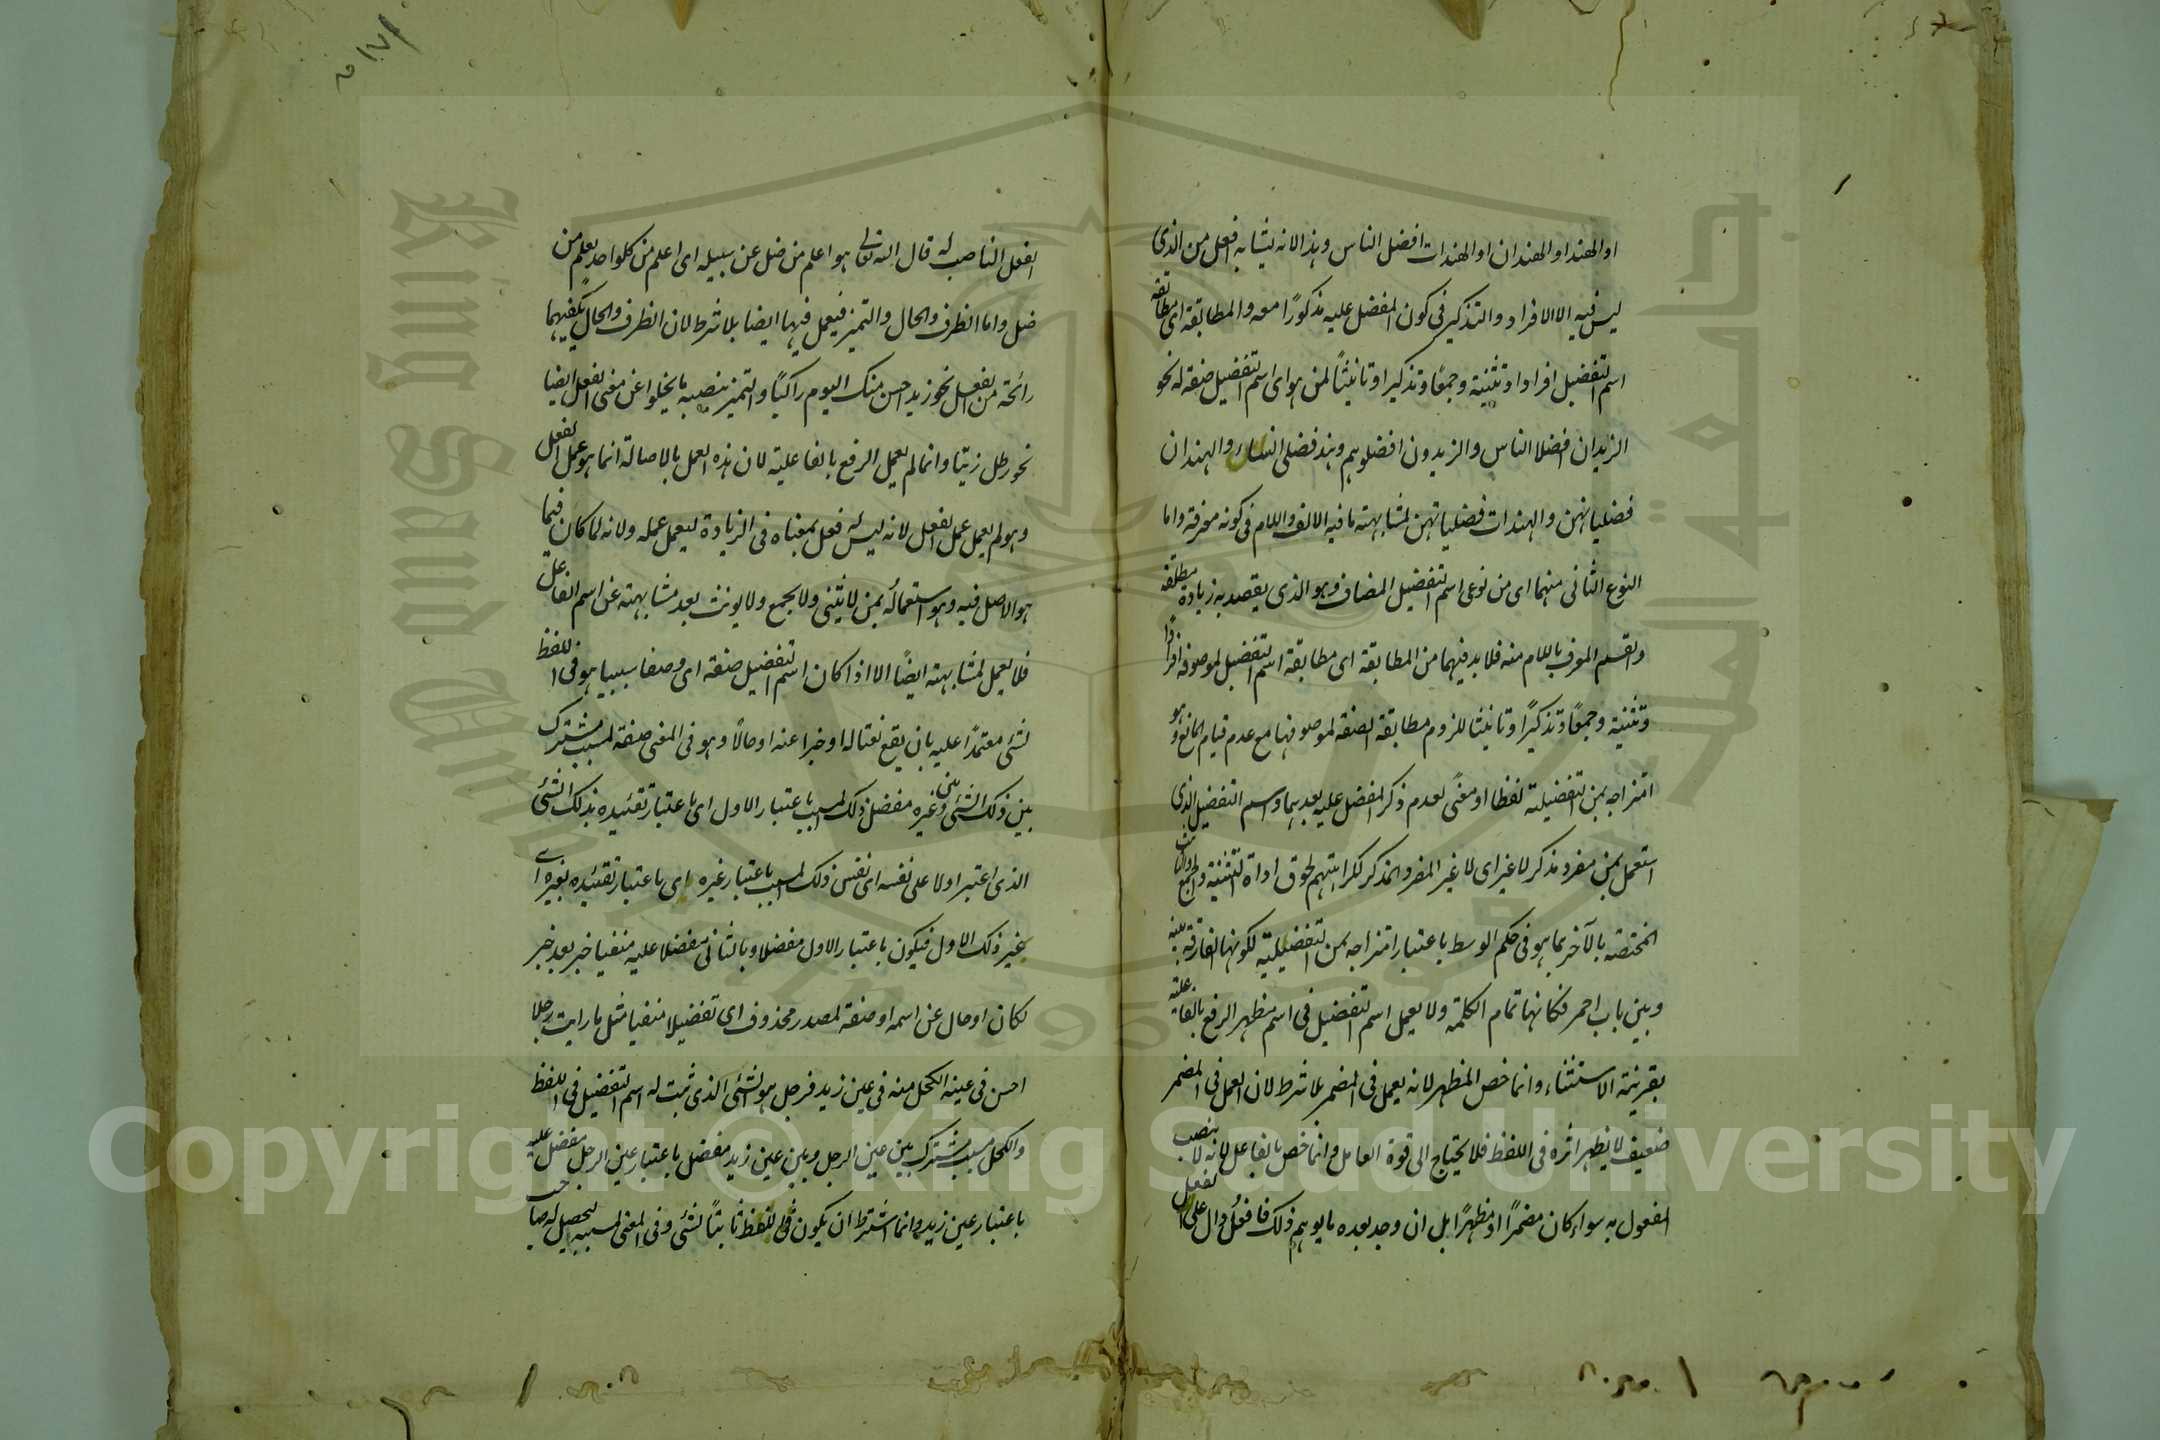 او الهند او الهندان او الهندات افضل الناس وهذا لانه يشابه افعل من الذى
ليس فيه الا الافراد والتذكير فى كون المفضل عليه مذكورًا معه والمطابقة اى مطابقة
اسم التفضيل افرادا وتثنية وجمعًا وتذكيرا وتانيثًا لمن هو اى اسم التفضيل صفة له نحو
الزيدان افضلا الناس والزيدون افضلوهم وهند فضلى النساء والهندان
فضلياتهن والهندات فضلياتهن لمشابهته ما فيه الالف واللام فى كونه معرفة واما
النوع الثانى منهما اى من نوعى اسم التفضيل المضاف وهو الذى يقصد به زيادة مطلقة
والقسم المعرف باللام منه فلا بد فيهما من المطابقة اى مطابقة اسم التفضيل لموصوفه افرادًا
وتثنية وجمعًا وتذكيرًا وتانيثا للزوم مطابقة الصفة لموصوفها مع عدم قيام المانع وهو
امتزاجه بمن التفضيلية لفظا او معنًى لعدم ذكر المفضل عليه بعدهما واسم التفضيل الذى
استعمل بمن مفرد مذكر لا غير اى لا غير المفرد المذكر لكراهتهم لحوق اداة التثنية والجمع والتانيث
المختصة بالآخر بما هو فى حكم الوسط باعتبار امتزاجه بمن التفضيلية لكونها الفارقة بينه
وبين باب احمر فكانها تمام الكلمة ولا يعمل اسم التفضيل فى اسم مظهر الرفع بالفاعلية
بقرينة الاستثناء وانما خص المظهر لانه يعمل فى المضمر بلا شرط لان العمل فى المضمر
ضعيف لا يظهر اثره فى اللفظ فلا يحتاج الى قوة العامل وانما خص بالفاعل لانه لا ينصب
المفعول به سواء كان مضمرًا او مظهرًا بل ان وجد بعده ما يوهم ذلك فافعلُ دال على الفعل
الفعل الناصب له قال الله تعالى هو اعلم من ضل عن سبيله اى اعلم من كلواحد يعلم من
ضل واما الظرف والحال والتميز فيعمل فيها ايضا بلا شرط لان الظرف والحال يكفيهما
رائحة من الفعل نحو زيد احسن منك اليوم راكبًا والتميز ينصبه ما يخلوا عن معنى الفعل ايضا
نحو رطل زيتا وانما لم يعمل الرفع بالفاعلية لان هذه العمل بالاصالة انما هو عمل الفعل
وهو لم يعمل عمل الفعل لانه ليس له فعل بمعناه فى الزيادة ليعمل عمله ولانه لما كان فيما
هو الاصل فيه وهو استعماله بمن لا يثنى ولا يجمع ولا يونث بعد مشابهته عن اسم الفاعل
فلا يعمل لمشابهته ايضًا الا اذا كان اسم التفضيل صفة اى وصفا سببيا هو فى اللفظ
لشئ معتمدًا عليه بان يقع نعتا له او خبرا عنه او حالًا وهو فى المعنى صفة لمسبب مشترك
بين ذلك الشئ وبين غيره مفضل ذلك المسبب باعتبار الاول اى باعتبار تقئيده بذلك الشئ
الذى اعتبر اولا على نفسه اى نفس ذلك المسبب باعتبار غيره اى باعتبار تقئيده بغيره اى
بغير ذلك الاول فيكون باعتبار الاول مفضلا وبالثانى مفضلا عليه منفيا خبر بعد خبر
لكان او حال عن اسمه او صفة لمصدر محذوف اى تفضيلا منفيا مثل ما رايت رجلا
احسن فى عينه الكحل منه فى عين زيد فرجل هو الشئ الذى ثبت له اسم التفضيل فى اللفظ
والكحل مسبب مشترك بين عين الرجل وبين عين زيد مفضل باعتبار عين الرجل مفضل عليه
باعتبار عين زيد وانما اشترط ان يكون فى اللفظ ثابتًا لشئ وفى المعنى لمسببه ليحصل له صاحب